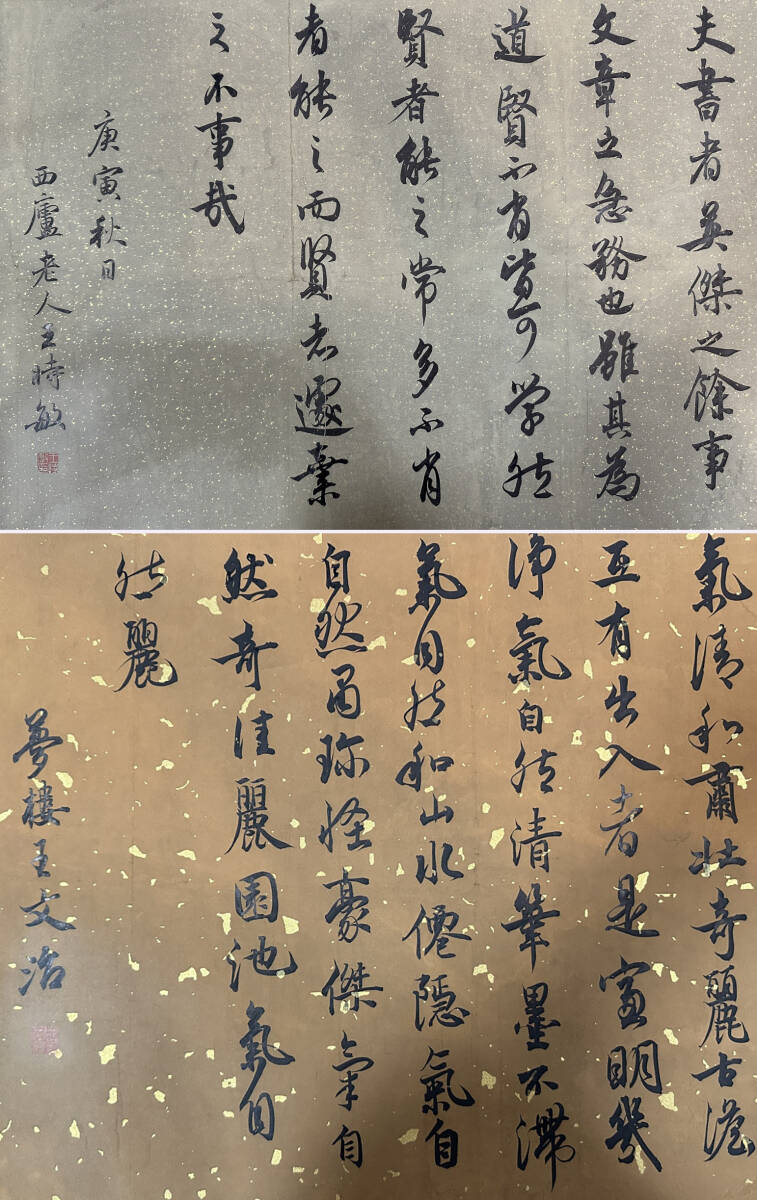 夫書者英傑之餘事
文章之急務也雖其為
道賢不肖皆可学然
賢者能之常多不肖
者能之而賢者遽棄
之不事哉
庚寅秋日
西廬老人王時敏
氣清和肅壮奇麗古澹
互有出入者是窗明几
净氣自然清筆墨不滯
氣自然和山水僊隱氣自
自然肅珎怪豪傑氣自
然奇佳麗園池氣自
然麗
夢樓王文治